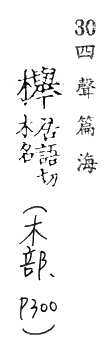 30 四聲篇海
櫸 居語切 木名 (木部、P300)